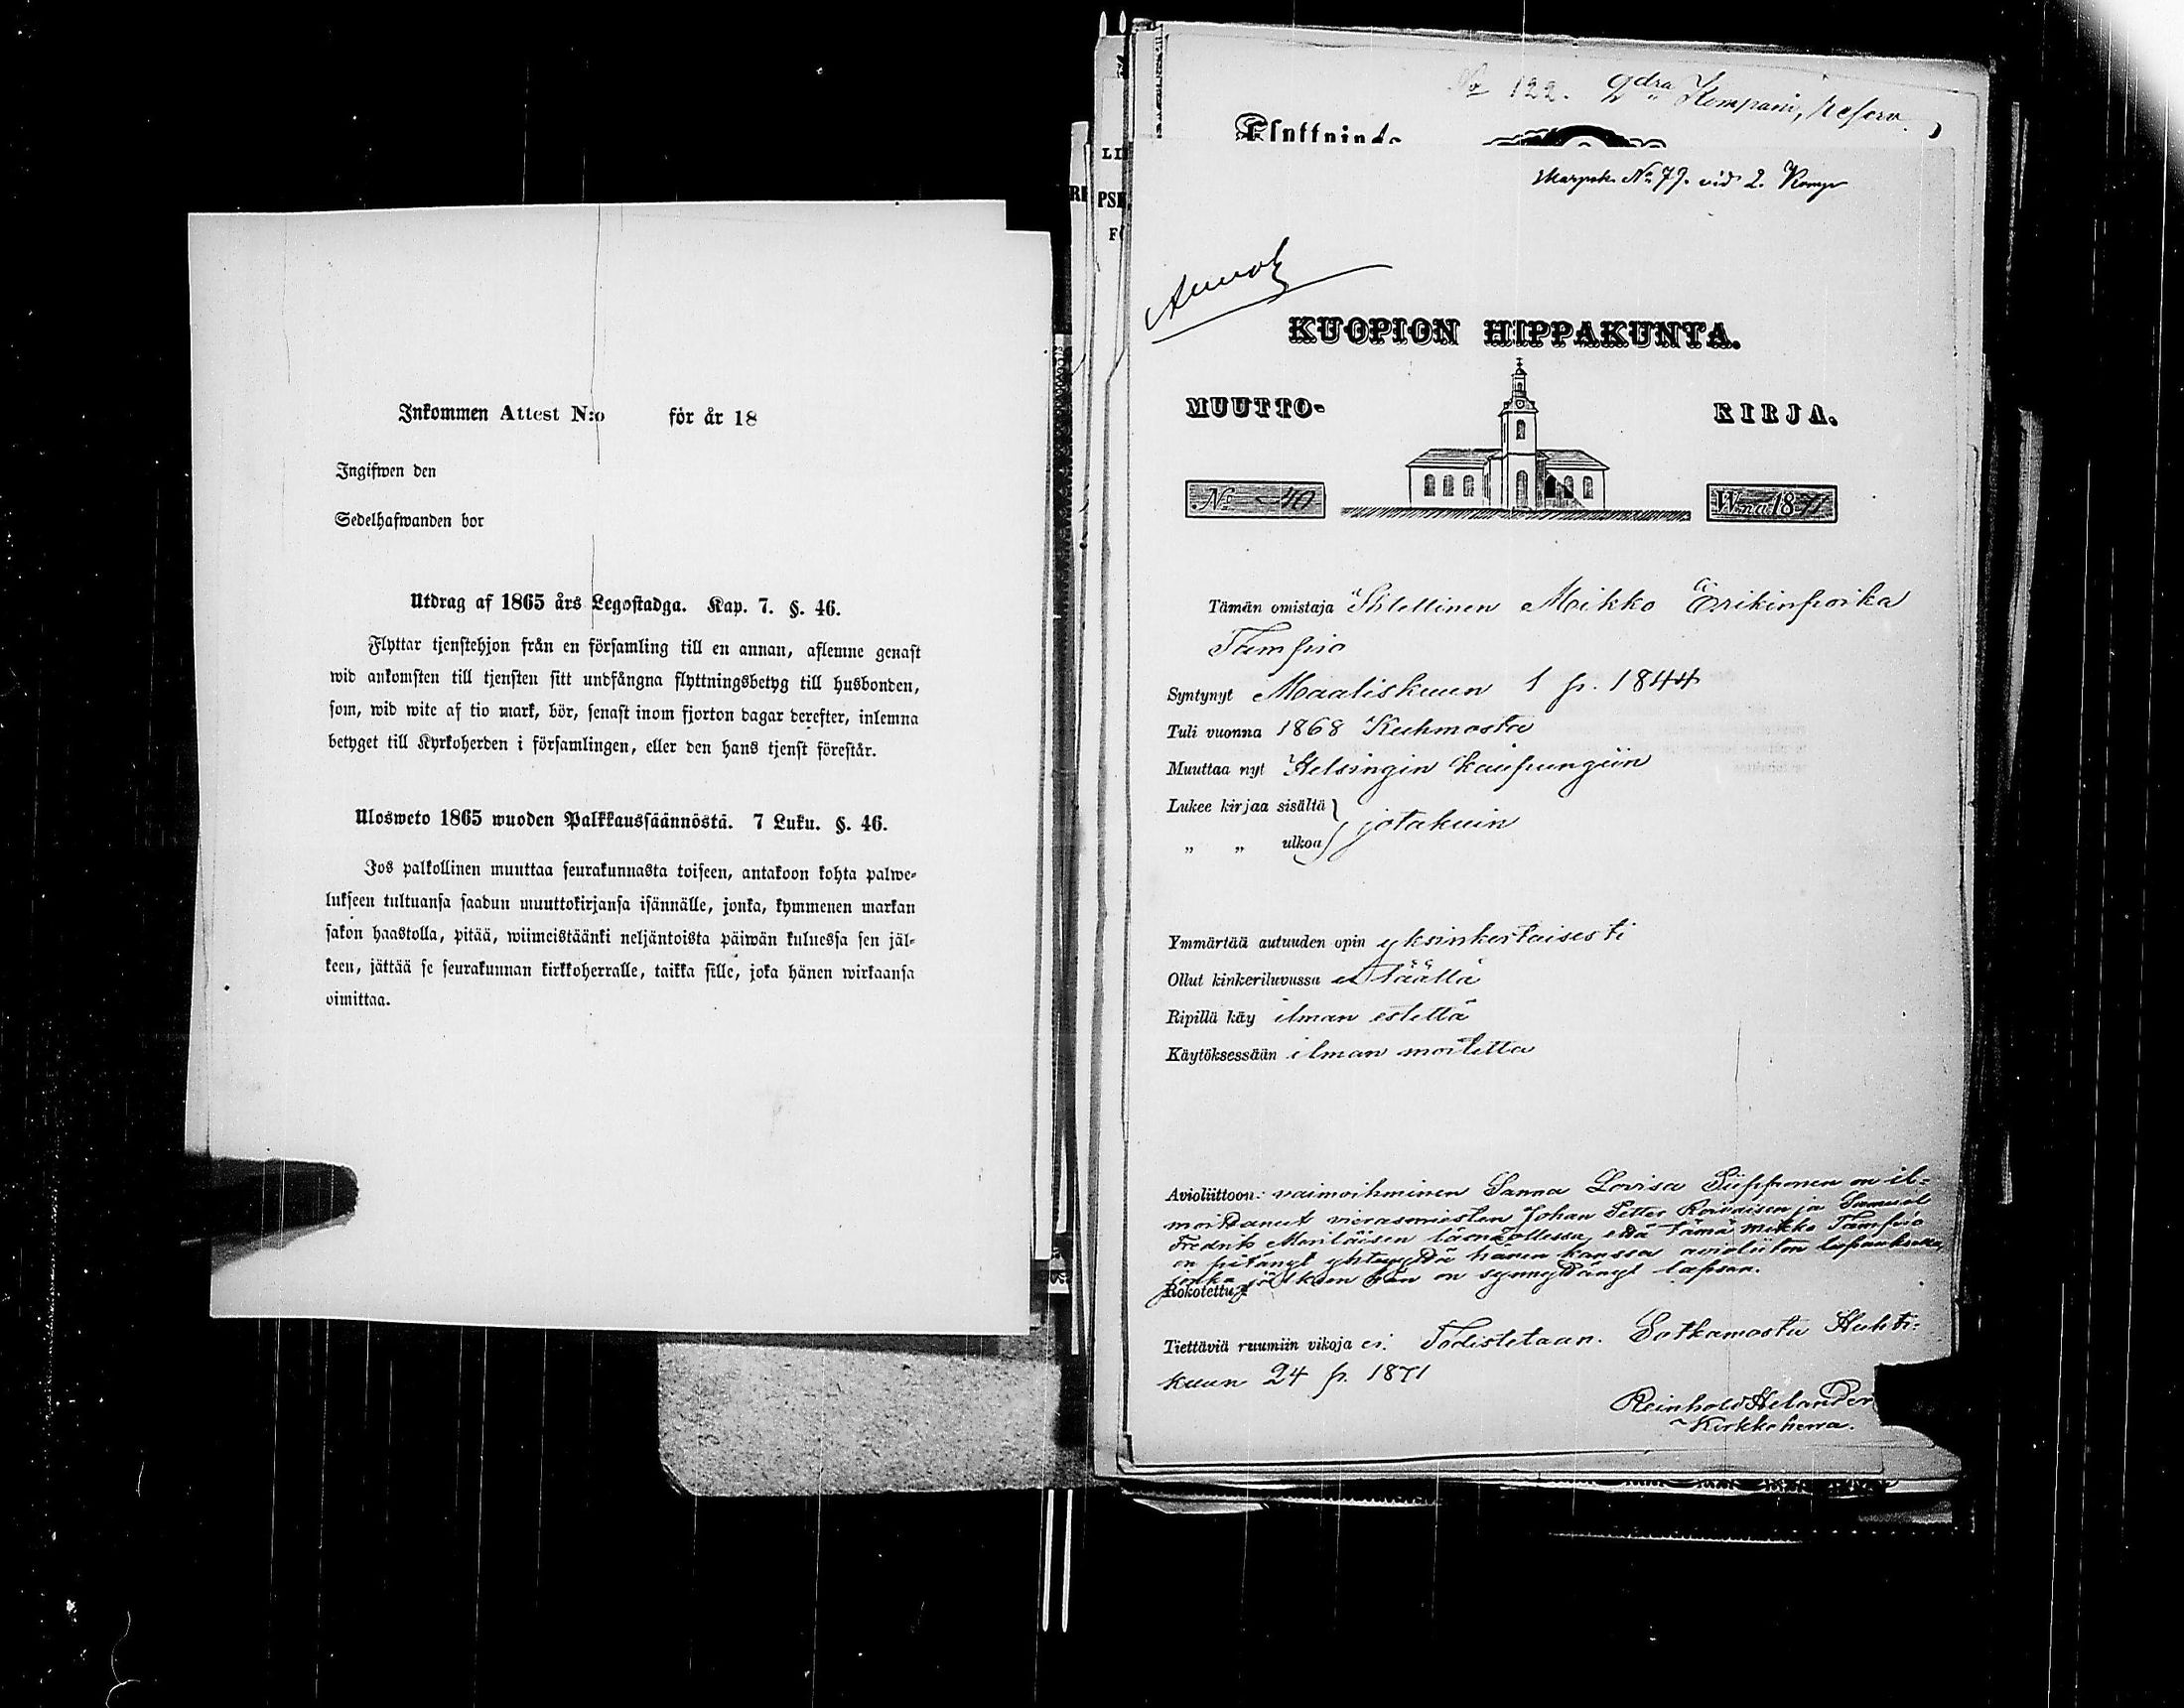 Inkommen Attest N:o för år 18
Ingifwen den
Sedelhafwanden bor
Utdrag af 1865 års Legostadga. Kap. 7. §. 46.
Flyttar tjenstehjon från en församling till en annan, aflemne genast
wid ankomsten till tjensten sitt undfångna flyttningsbetyg till husbonden,
som, wid wite af tio mark, bör, senast inom fjorton dagar derefter, inlemna
betyget till Kyrkoherden i församlingen, eller den hans tjenst förestår.
Ulosweto 1865 wuoden Palkkaussäännöstä. 7 Luku. §. 46.
Jos palkollinen muuttaa seurakunnasta toiseen, antakoon kohta palwe-
lukseen tultuansa saadun muuttokirjansa isännälle, jonka, kymmenen markan
sakon haastolla, pitää, wiimeistäänki neljäntoista päiwän kuluessa sen jäl-
keen, jättää se seurakunnan kirkkoherralle, taikka sille, joka hänen wirkaansa
oimittaa.
No 122. 2dra Kompani, Reserv.
Flyttnings
No 79. vid 2. Komp
KUOPION HIPPAKUNTA.
MUUTTO- KIRJA.
No 40 W:na 1871
Tämän omistaja Mikko Erikinpoika
Tampio
Syntynyt Maaliskuun 1 p. 1844
Tuli vuonna 1868 Kuhmosta
Muuttaa nyt Helsingin kaupungiin
Lukee kirjaa sisältä
„ „ ulkoa } jotakuin
Ymmärtää autuuden opin yksinkertaisesti
Ollut kinkeriluvussa ei täällä
Ripillä käy ilman estettä
Käytöksessään ilman moitetta
Avioliittoon: vaimoihminen Sanna Lovisa Piipponen on il-
moittanut vierasmiesten Johan Petter Roivaisen ja Samuel
Fredrik Moriläisen läsnäollessa, että tämä Mikko Tampio
on pitänyt yhteyttä hänen kanssa avioliiton lupauksella,
jonka jälkeen hän on synnyttänyt lapsen.
Rokotettu
Tiettäviä ruumiin vikoja ei. Todistetaan. Sotkamosta Huhti-
kuun 24 p. 1871
Reinhold Helander
Kirkkoherra.